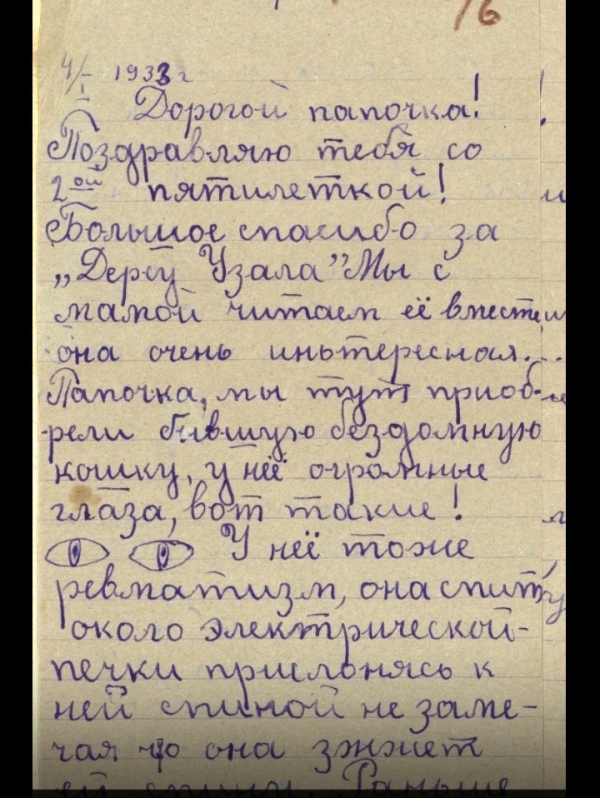 16
4/I 1933 г
Дорогой папочка!
Поздравляю тебя со
2ой пятилеткой!
Большое спасибо за
„Дерсу Узала” Мы с
мамой читаем её вместе
она очень иньтересная...
Папочка, мы тут приоб-
рели бывшую бездомную
кошку, у неё огромные
глаза, вот такие!
У неё тоже
ревматизм, она спит
около электрической-
печки прислонясь к
ней спиной не заме-
чая что она зжжет
ей спину. Раньше